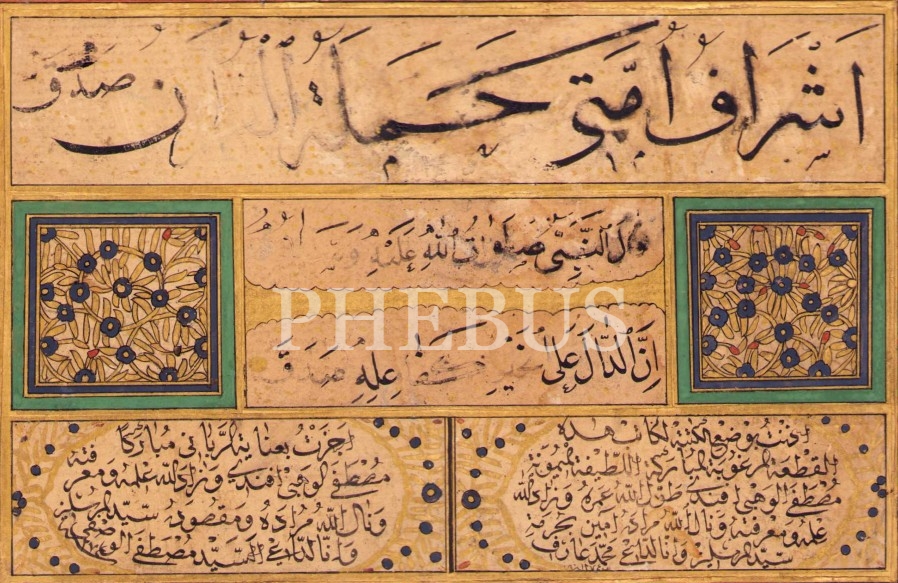 اَشْرَافُ اُمَّتِي حَمَلَةُ الْقُرْاٰنِ صَدَقَ
قَالَ النَّبِيُّ صَلَوَاتُ اللهِ عَلَيْهِ وَسَلَّمَ
PHEBUS
اِنَّ الدَّالَّ عَلَى الْخَيْرِ كَفَاعِلِهِ صَدَقَ
اذنت بوضع الكتبه لكاتب هذه
القطعة المرغوبة المباركة اللطيفة
مصطفى الوهبي افندي طول الله عمره وزاد الله
علمه ومعرفته ونال الله مراده امين بحرمة
سيد المرسلين وانا الداعي محمد عارف
اجزت بعناية الرباني مباركا فيه
مصطفى الوهبي افندي وزاد الله علمه ومعر
ونال الله مراده ومقصوده سيد المرسلين
وانا الداعي السيد مصطفى